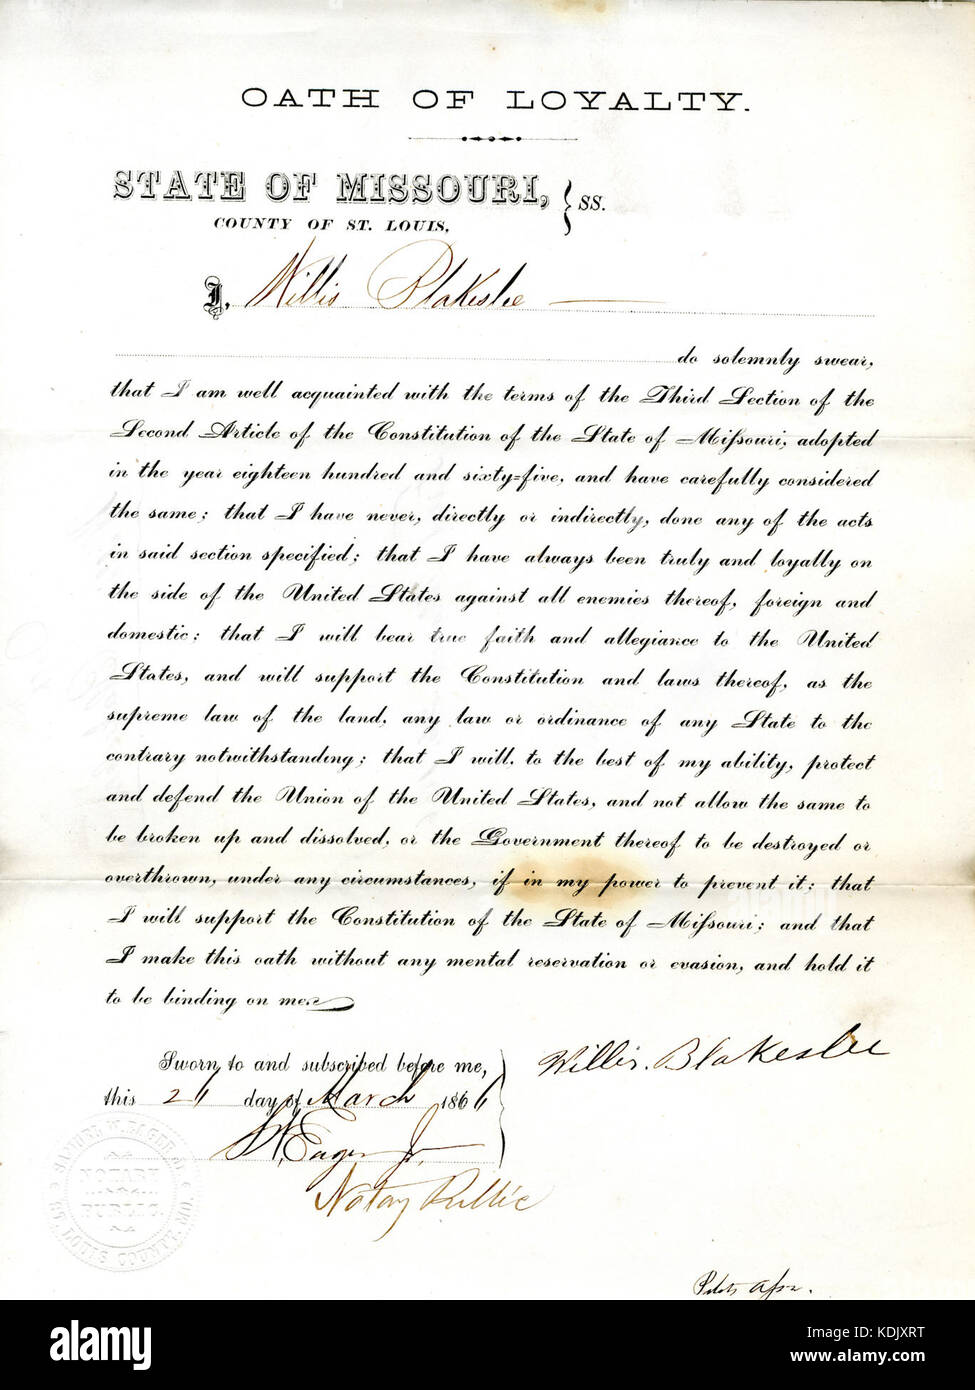 OATH OF LOYALTY.
STATE OF MISSOURI, } SS.
COUNTY OF ST. LOUIS,
I, Willis Blakeslee
do solemnly swear,
that I am well acquainted with the terms of the Third Section of the
Second Article of the Constitution of the State of Missouri, adopted
in the year eighteen hundred and sixty-five, and have carefully considered
the same; that I have never, directly or indirectly, done any of the acts
in said section specified; that I have always been truly and loyally on
the side of the United States against all enemies thereof, foreign and
domestic; that I will bear true faith and allegiance to the United
States, and will support the Constitution and laws thereof, as the
supreme law of the land, any law or ordinance of any State to the
contrary notwithstanding; that I will, to the best of my ability, protect
and defend the Union of the United States, and not allow the same to
be broken up and dissolved, or the Government thereof to be destroyed or
overthrown, under any circumstances, if in my power to prevent it; that
I will support the Constitution of the State of Missouri; and that
I make this oath without any mental reservation or evasion, and hold it
to be binding on me.
Willis. Blakeslee
Sworn to and subscribed before me,
this day of March 186
Eager Jr.
Notary Public
SAMUEL W. EAGER JR
NOTARY
PUBLIC.
ST. LOUIS COUNTY, MO.
alamy
Image ID: KDJXRT
www.alamy.com